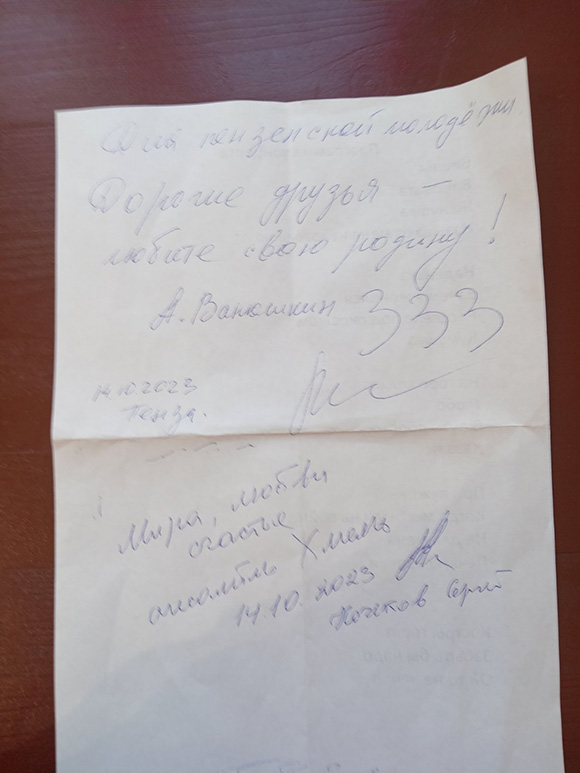 Для пензенской молодёжи
Дорогие друзья –
любите свою родину!
А. Ванюшкин 333
14.10.2023
Пенза.
Мира, любви
счастье
ансамбль Хмель
14.10.2023
Сергей